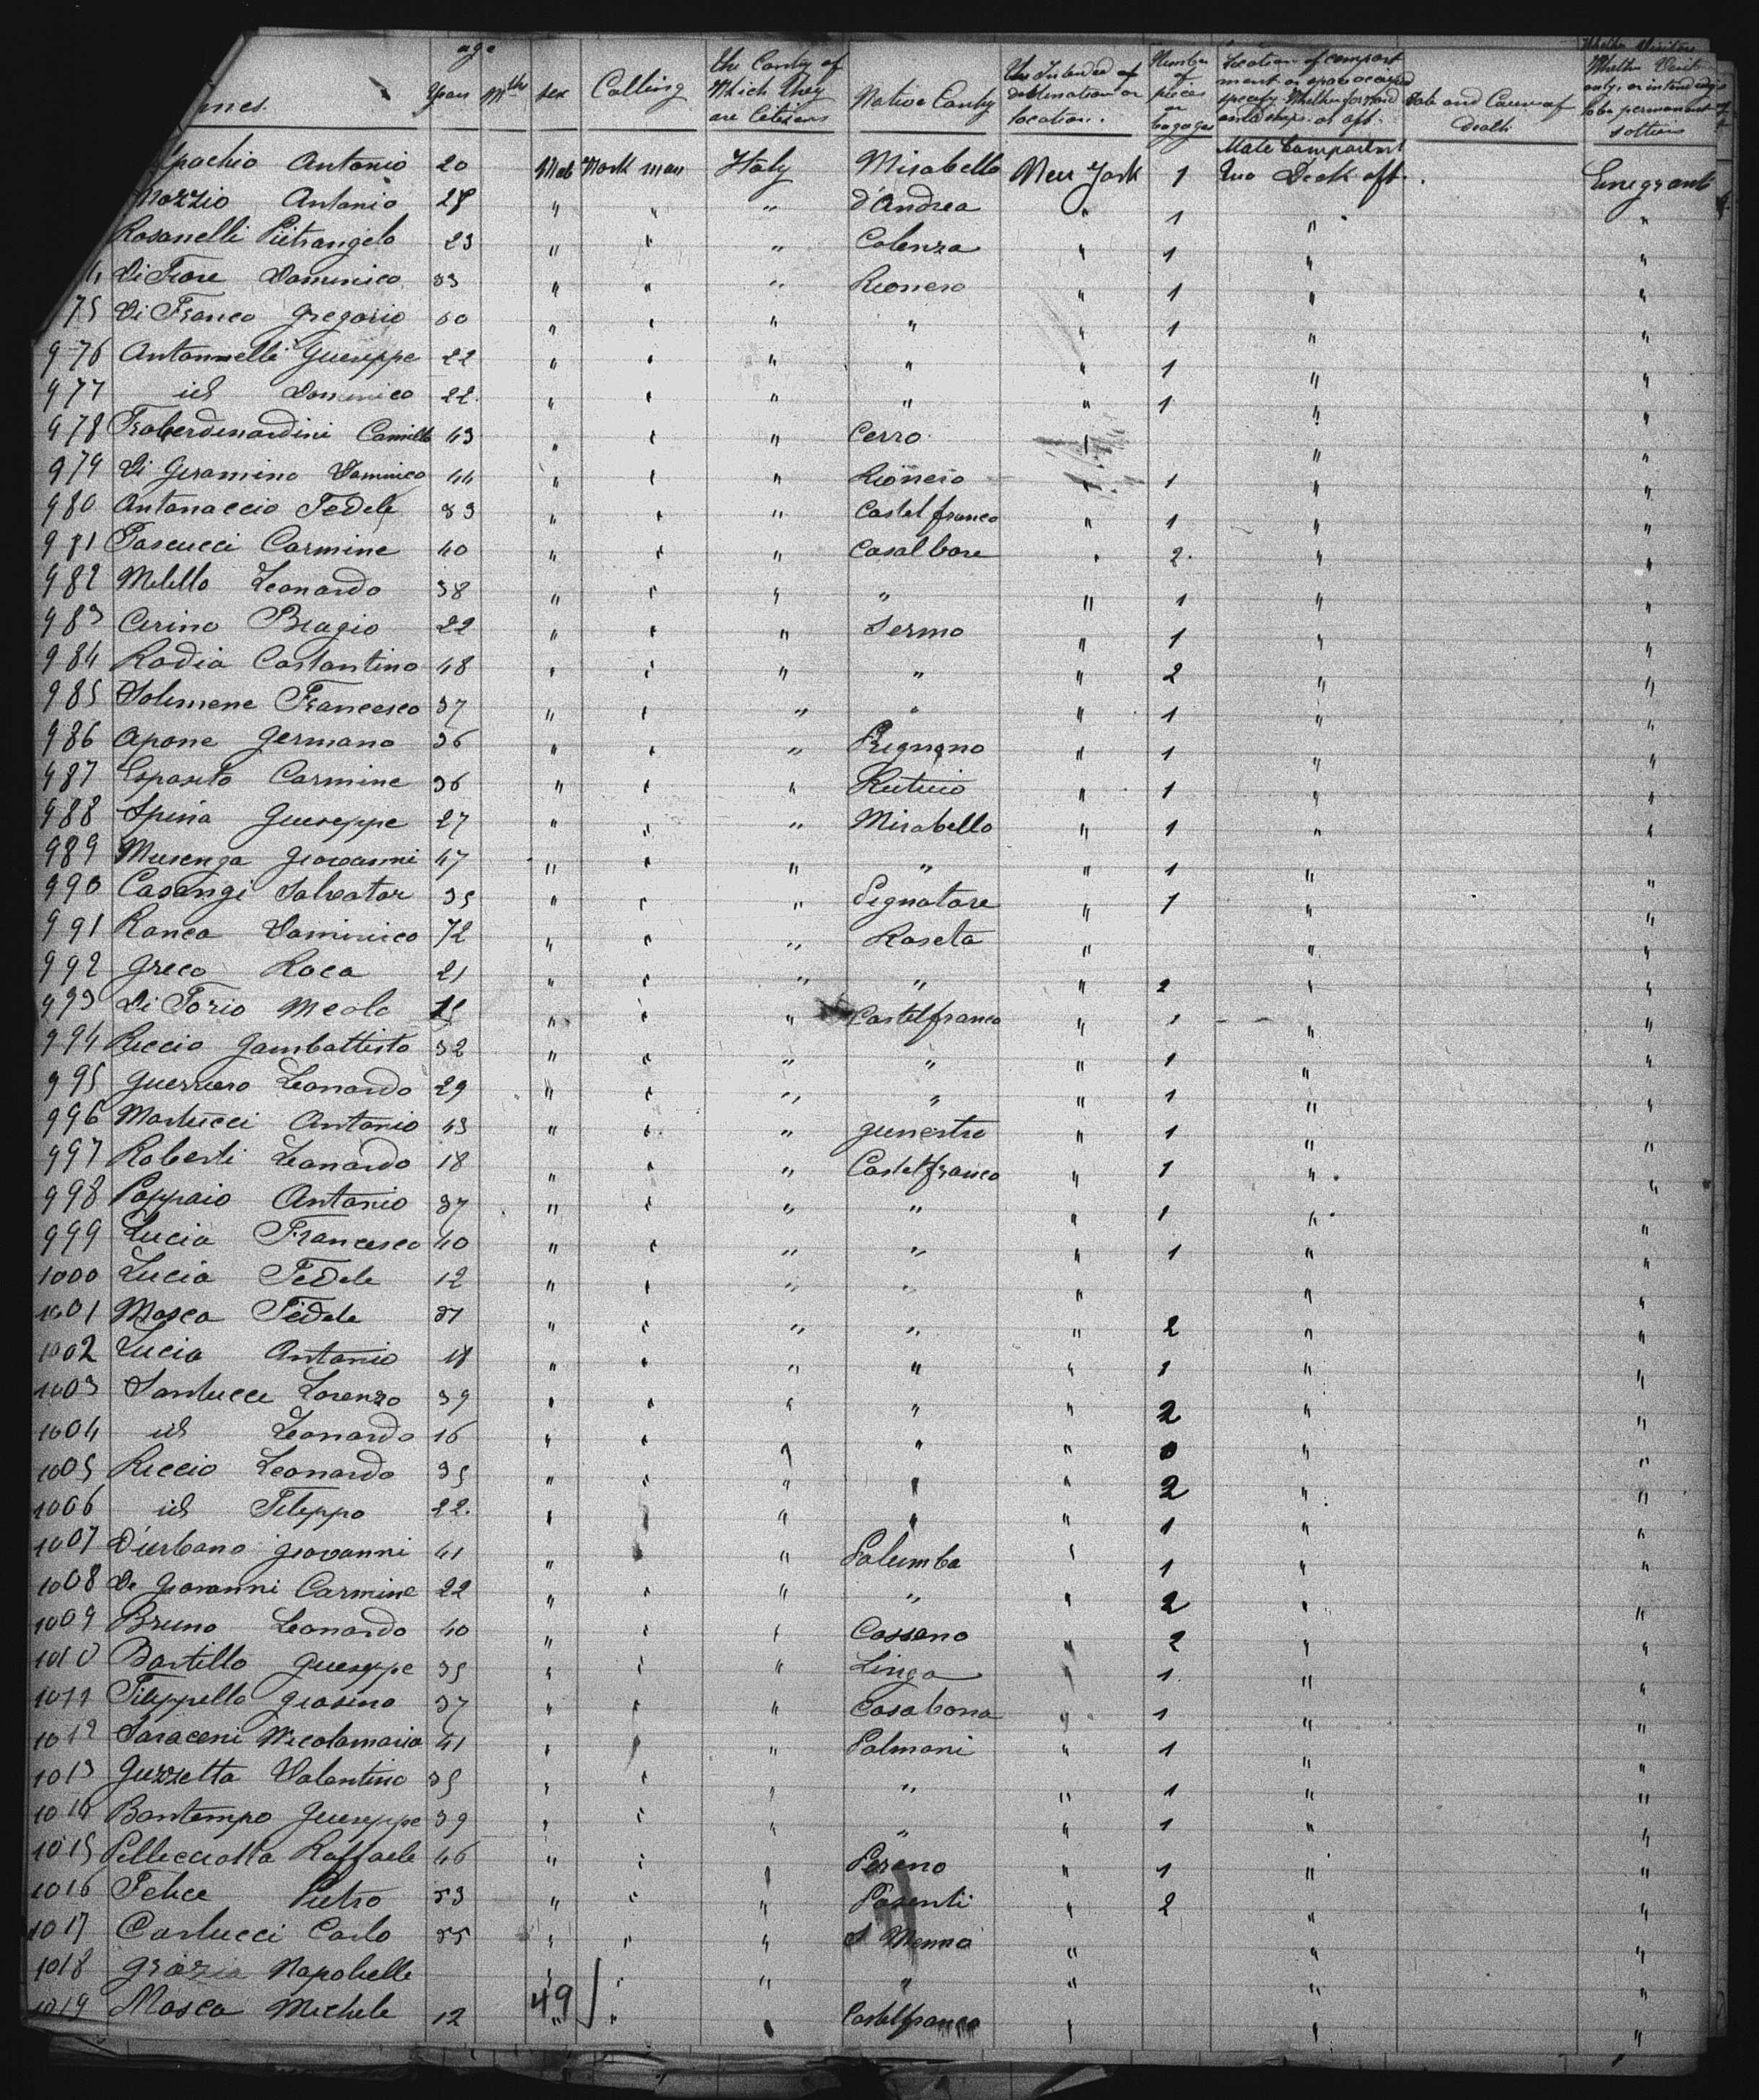 age
nes. Years Mths Sex Calling the Contry of Which they are Citizens Native Contry the Intended of destination or location. Number of pieces or bagages Location of compartment or space occupied specify Whether forward amidships or aft. Date and Cause of Death Whether Visitors only, or intending to be permanent settlers
pachio Antonio 20 Male Work man Italy Mirabello New York 1 Male Compartmt Two Deck aft. Emegrant
Mazzio Antonio 28 " " " d'Andrea " 1 " "
Rosanelli Pietrangelo 23 " " " Colenza " 1 " "
4 Di Fiore Domenico 33 " " " Rionero " 1 " "
75 Di Franco Gregorio 60 " " " " " 1 " "
976 Antonnelli Guiseppe 22 " " " " " 1 " "
977 id Domenico 22 " " " " " 1 " "
978 Fraberdenardini Camillo 43 " " " Cerro " " "
979 Di Geramino Dominico 44 " " " Rionero " 1 " "
980 Antonaccio Fedele 33 " " " Castelfranco " 1 " "
981 Pascucci Carmine 40 " " " Casalbore " 2 " "
982 Melillo Leonardo 38 " " " " " 1 " "
983 Cirino Biagio 22 " " " Sermo " 1 " "
984 Radia Costantino 48 " " " " " 2 " "
985 Solimene Francesco 37 " " " " " 1 " "
986 Apone Germano 36 " " " Prignano " 1 " "
987 Esposito Carmine 36 " " " Rutino " 1 " "
988 Spina Guiseppe 27 " " " Mirabello " 1 " "
989 Musenga Giovanni 47 " " " " " 1 " "
990 Casangi Salvator 35 " " " Pignatare " 1 " "
991 Ranca Dominico 72 " " " Roseta " " "
992 Greco Roca 21 " " " " " 2 " "
993 Di Iorio Meolo " " " Castelfranco " 1 " "
994 Riccio Gambattisto 32 " " " " " 1 " "
995 Guerriero Leonardo 29 " " " " " 1 " "
996 Martucci Antonio 43 " " " Gunestra " 1 " "
997 Roberti Leonardo 18 " " " Castelfranco " 1 " "
998 Poppaio Antonio 37 " " " " " 1 " "
999 Lucia Francesco 40 " " " " " 1 " "
1000 Lucia Fedele 12 " " " " " " "
1001 Mosca Fedele 37 " " " " " 2 " "
1002 Lucia Antonio 18 " " " " " 1 " "
1003 Santucce Lorenzo 39 " " " " " 2 " "
1004 id Leonardo 16 " " " " " 0 " "
1005 Riccio Leonardo 35 " " " " " 2 " "
1006 id Filippo 22. " " " " " 1 " "
1007 D'urbano Giovanni 41 " " " Palumba " 1 " "
1008 De Giovanni Carmine 22 " " " " " 2 " "
1009 Bruno Leonardo 40 " " " Cassano " 2 " "
1010 Bartillo Guiseppe 35 " " " Linga " 1 " "
1011 Filippello Grasino 37 " " " Casabona " 1 " "
1012 Saraceni Nicolamaria 41 " " " Palmani " 1 " "
1013 Guzzetta Valentino 35 " " " " " 1 " "
1014 Bontempo Guiseppe 39 " " " " " 1 " "
1015 Pellecciotta Raffaele 46 " " " Perano " 1 " "
1016 Felice Pietro 53 " " " Posenti " 2 " "
1017 Carlucci Carlo 55 " " " S Menna " " "
1018 Grazia Napolielle " " " " " " "
1019 Mosca Michele 12 49 " " " Castelfranco " " "